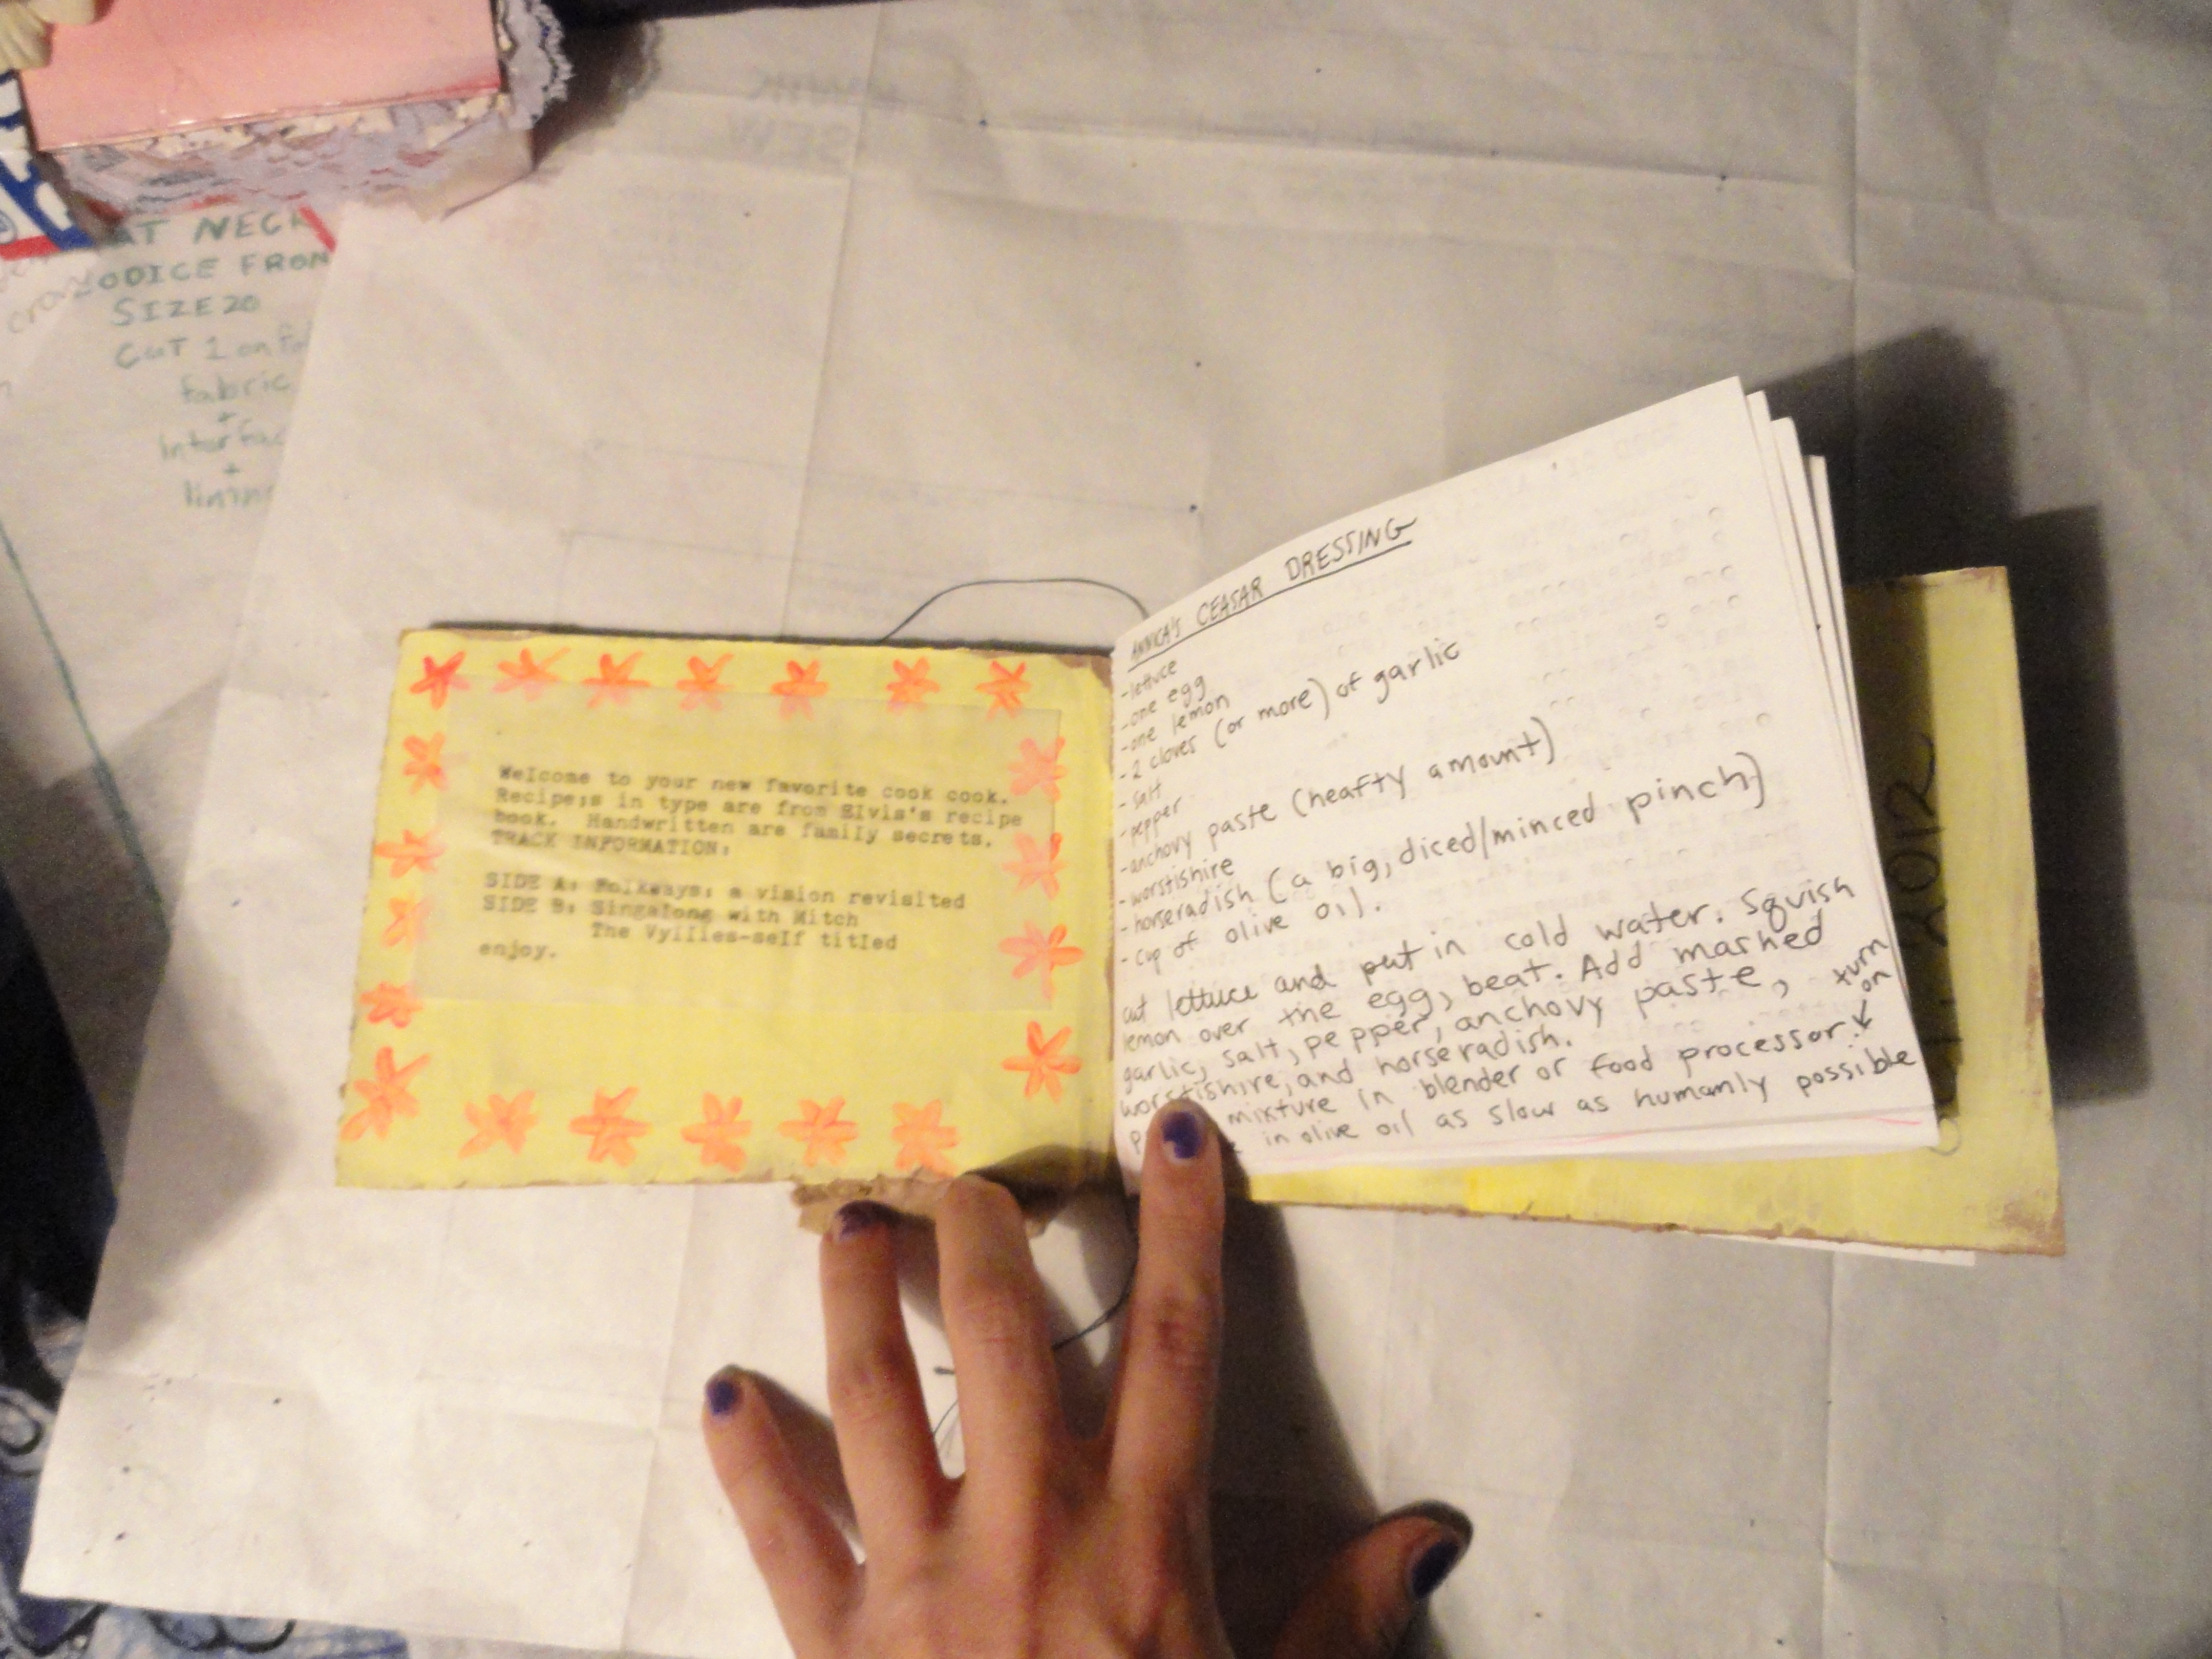 AT NECK
ODICE FRON
SIZE 20
CUT 1 on Fo
fabric
+
Interfac
+
lining
Welcome to your new favorite cook cook.
Recipe;s in type are from Elvis's recipe
book. Handwritten are family secrets.
TRACK INFORMATION:
SIDE A: Folkways: a vision revisited
SIDE B: Singalong with Mitch
The Vyllies-self titled
enjoy.
ANNICA'S CEASAR DRESSING
-lettuce
-one egg
-one lemon
-2 cloves (or more) of garlic
-salt
-pepper
-anchovy paste (heafty amount)
-worstishire
-horseradish (a big, diced/minced pinch)
-cup of olive oil.
cut lettuce and put in cold water. Squish
lemon over the egg, beat. Add mashed
garlic, salt, pepper, anchovy paste,
worstishire, and horseradish.
mixture in blender or food processor.
turn
on
in olive oil as slow as humanly possible
2012